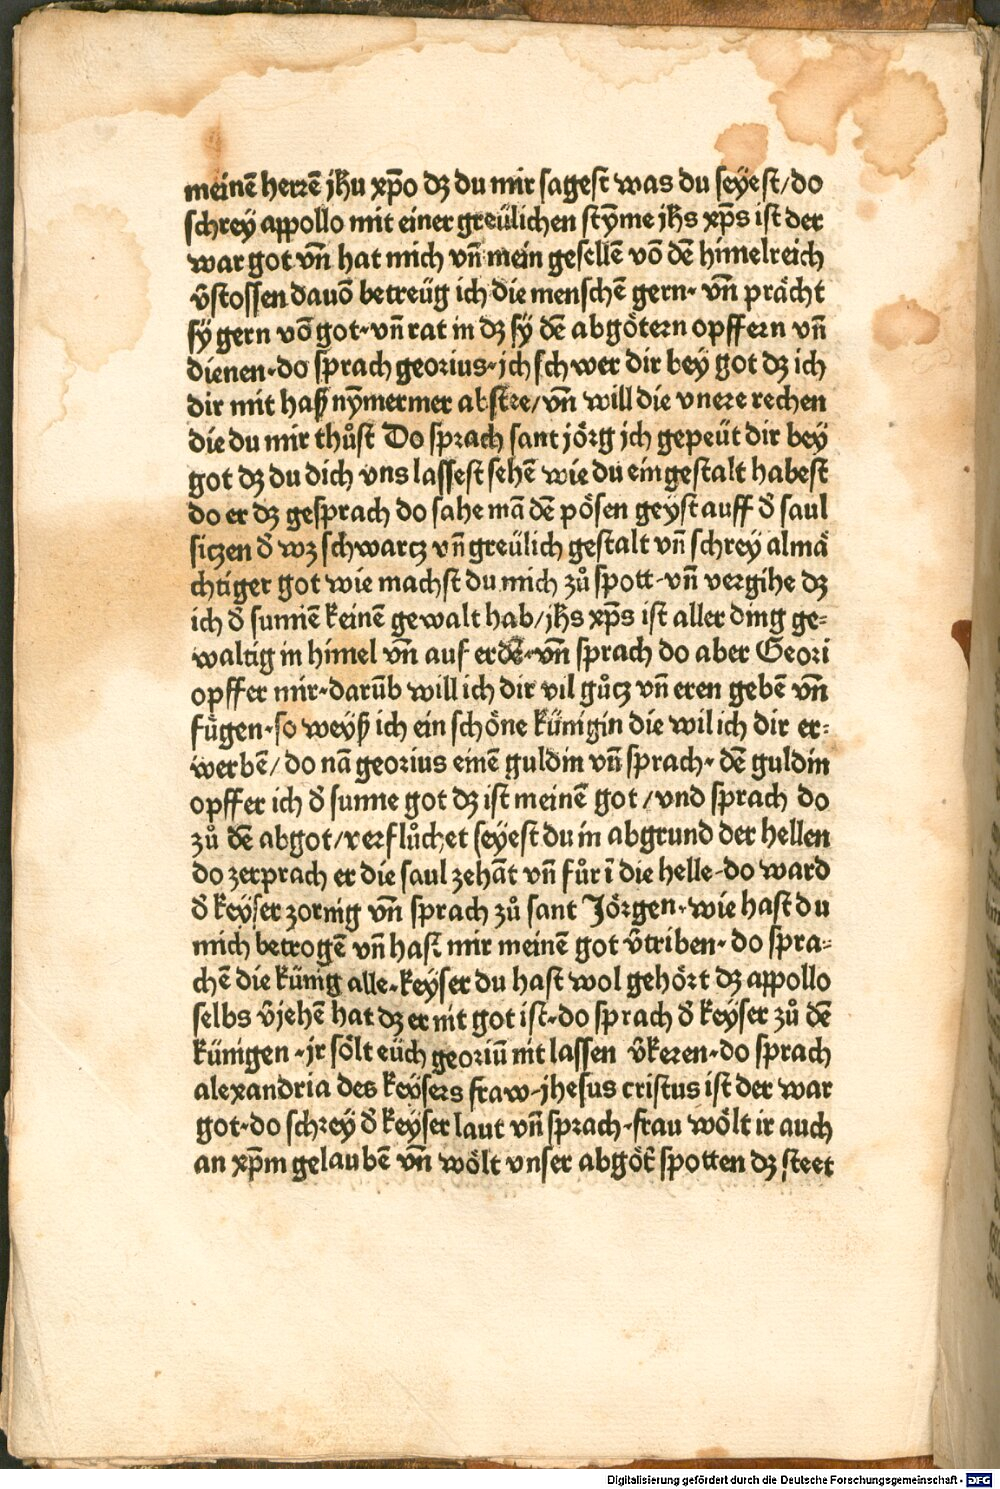 meinē herzē jh̄u xp̄o dz du mir sagest was du seÿest/do
schrey appollo mit einer greülichen stȳme jh̄s xp̄s ist der
war got vn̄ hat mich vn̄ mein gesellē vō dē himelreich
v̄stossen davō betreüg ich die menschē gern· vn̄ prächt
sÿ gern vō got·vn̄ rat in dz sÿ dē abgötern opffern vn̄
dienen·do sprach georius·jch schwer dir bey got dz ich
dir mit haß nȳmermer abstee/vn̄ will die vnere rechen
die du mir thůst Do sprach sant jörg jch gepeüt dir bey
got dz du dich vns lassest sehē wie du ein gestalt habest
do er dz gesprach do sahe mā dē pösen geÿst auff d̄ saul
siczen d̄ wz schwarcz vn̄ greülich gestalt vn̄ schrey almä
chtiger got wie machst du mich zů spott·vn̄ vergihe dz
ich d̄ sunnē keinē gewalt hab/jh̄s xp̄s ist aller ding ge=
waltig in himel vn̄ auf erdē·vn̄ sprach do aber Geori
opffer mir·darūb will ich dir vil gůcz vn̄ eren gebē vn̄
fügen·so weÿß ich ein schöne künigin die wil ich dir er=
werbē/do nā georius einē guldin vn̄ sprach· dē guldin
opffer ich d̄ sunne got dz ist meinē got/vnd sprach do
zů dē abgot/verflůchet seÿest du in abgrund der hellen
do zerprach er die saul zehāt vn̄ fůr ī die helle·do ward
d̄ keÿser zornig vn̄ sprach zů sant Jörgen·wie hast du
mich betrogē vn̄ hast mir meinē got v̄triben·do spra=
chē die künig alle·keÿser du hast wol gehört dz appollo
selbs v̄jehē hat dz er nit got ist·do sprach d̄ keÿser zů dē
künigen·jr sölt eüch georiū nit lassen v̄keren·do sprach
alexandria des keÿsers fraw·jhesus cristus ist der war
got·do schrey d̄ keÿser laut vn̄ sprach·frau wölt ir auch
an xp̄m gelaubē vn̄ wölt vnser abgöt̄ spotten dz steet
Digitalisierung gefördert durch die Deutsche Forschungsgemeinschaft - DFG